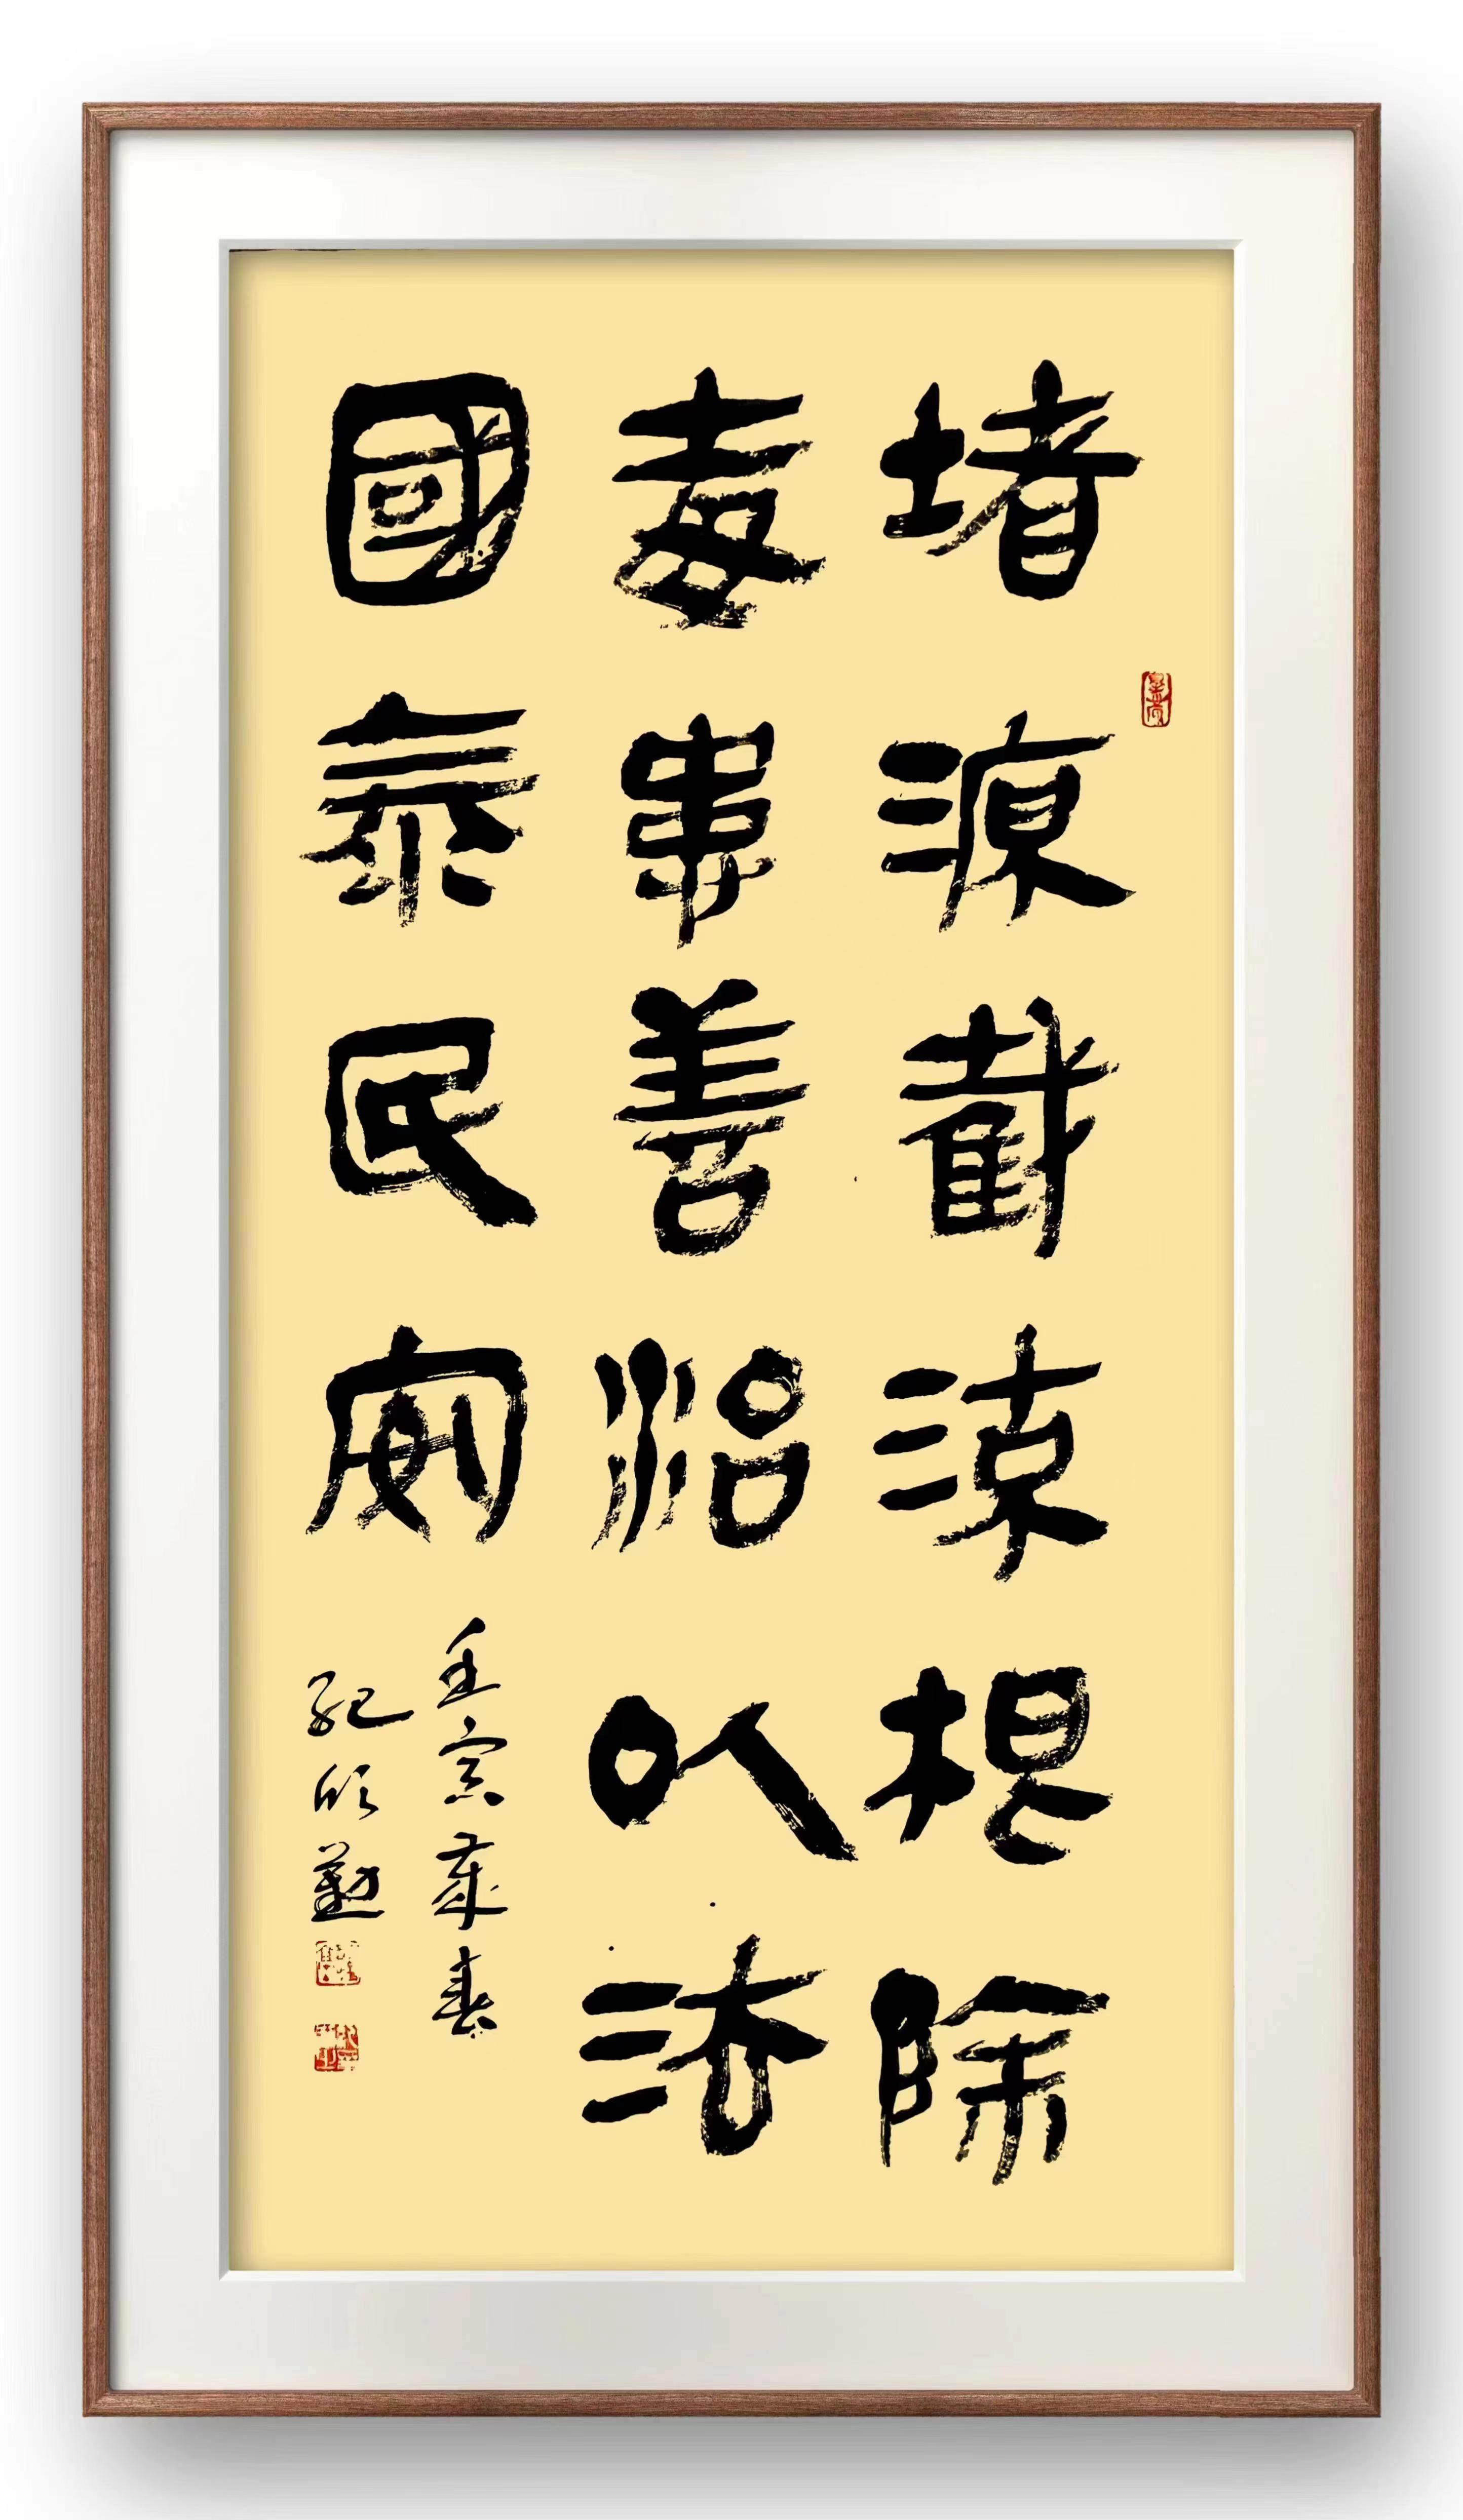 堵源截流根除
毒患善治以法
國泰民安
壬寅歲春